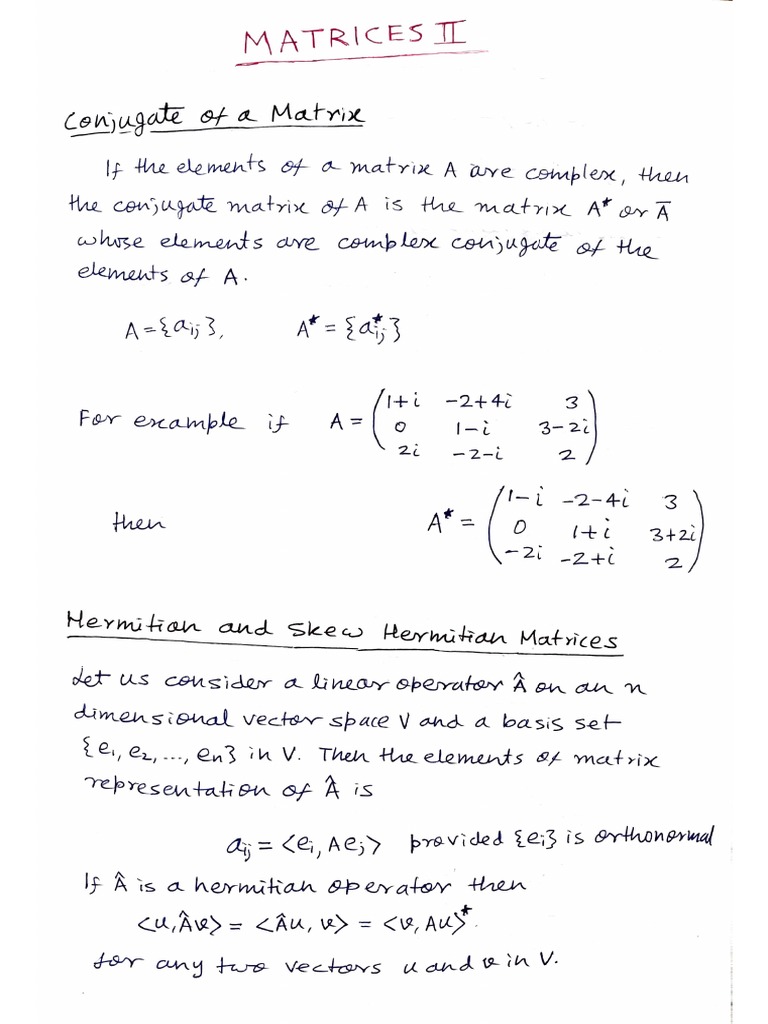 MATRICES II
Conjugate of a Matrix
If the elements of a matrix A are complex, then
the conjugate matrix of A is the matrix A* or A̅
whose elements are complex conjugate of the
elements of A.
A = {aij}, A* = {a*ij}
For example if A = (1+i -2+4i 3
0 1-i 3-2i
2i -2-i 2)
then A* = (1-i -2-4i 3
0 1+i 3+2i
-2i -2+i 2)
Hermition and Skew Hermitian Matrices
Let us consider a linear operator Â on an n
dimensional vector space V and a basis set
{e1, e2, ..., en} in V. Then the elements of matrix
representation of Â is
aij = <ei, Aej> provided {ei} is orthonormal
If Â is a hermitian operator then
<u, Âv> = <Âu, v> = <v, Au>*.
for any two vectors u and v in V.